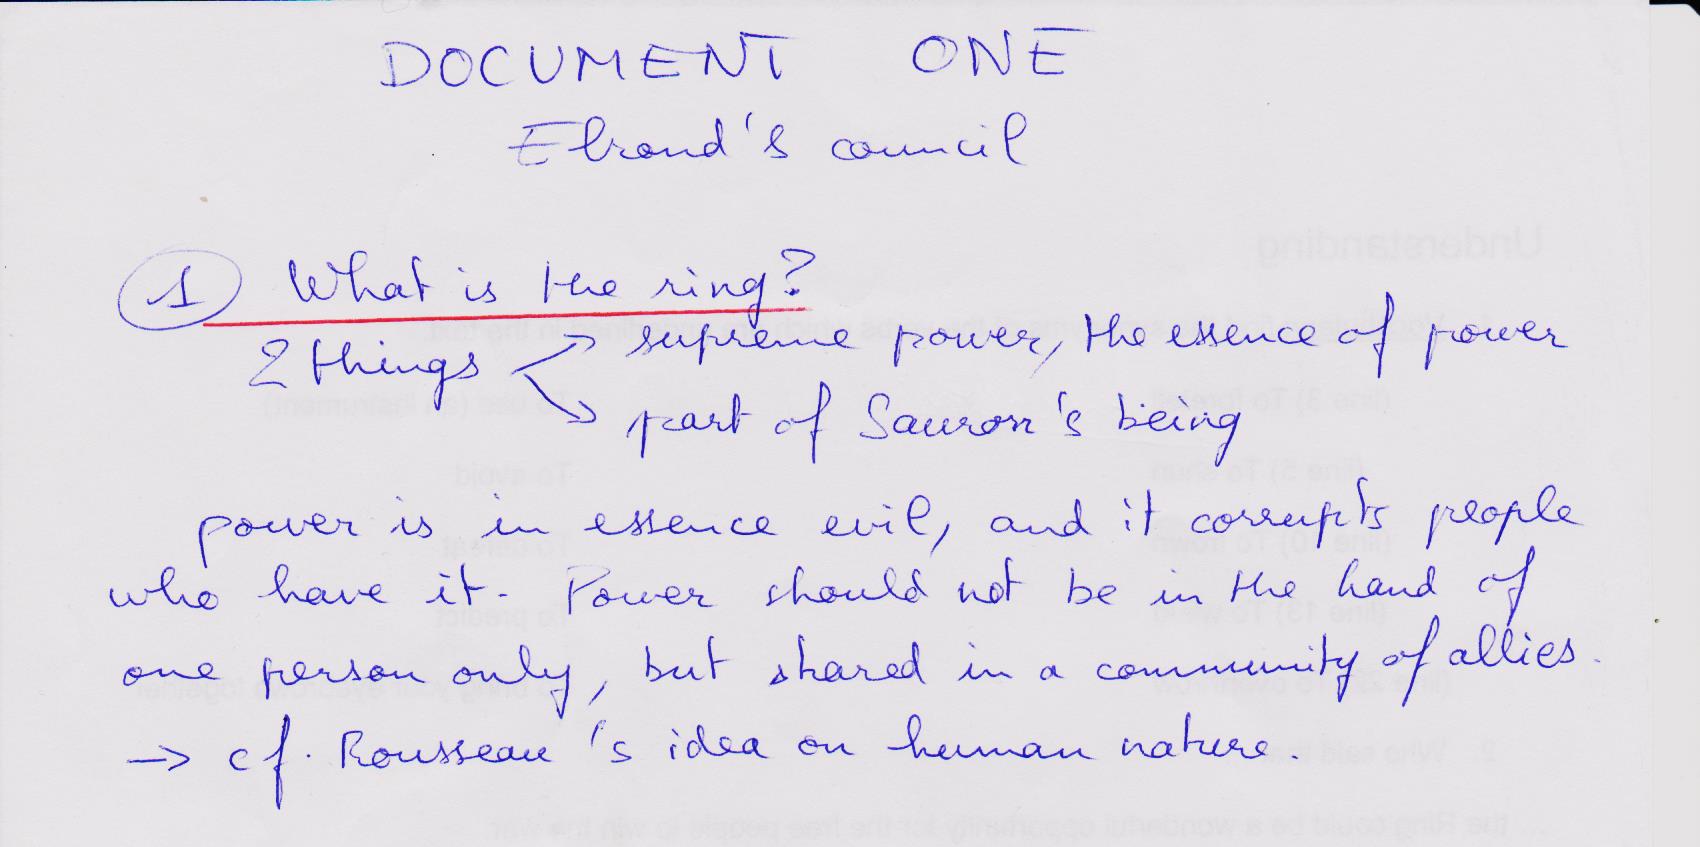 DOCUMENT ONE
Elrond's council
1 What is the ring?
2 things → supreme power, the essence of power
→ part of Sauron's being
power is in essence evil, and it corrupts people
who have it. Power should not be in the hand of
one person only, but shared in a community of allies.
→ cf. Rousseau's idea on human nature.
Understanding
(line 5) To shun To avoid
(line 10) To frown
To predict
2. Who said that
... the Ring could be a wonderful opportunity for the free people to win the war